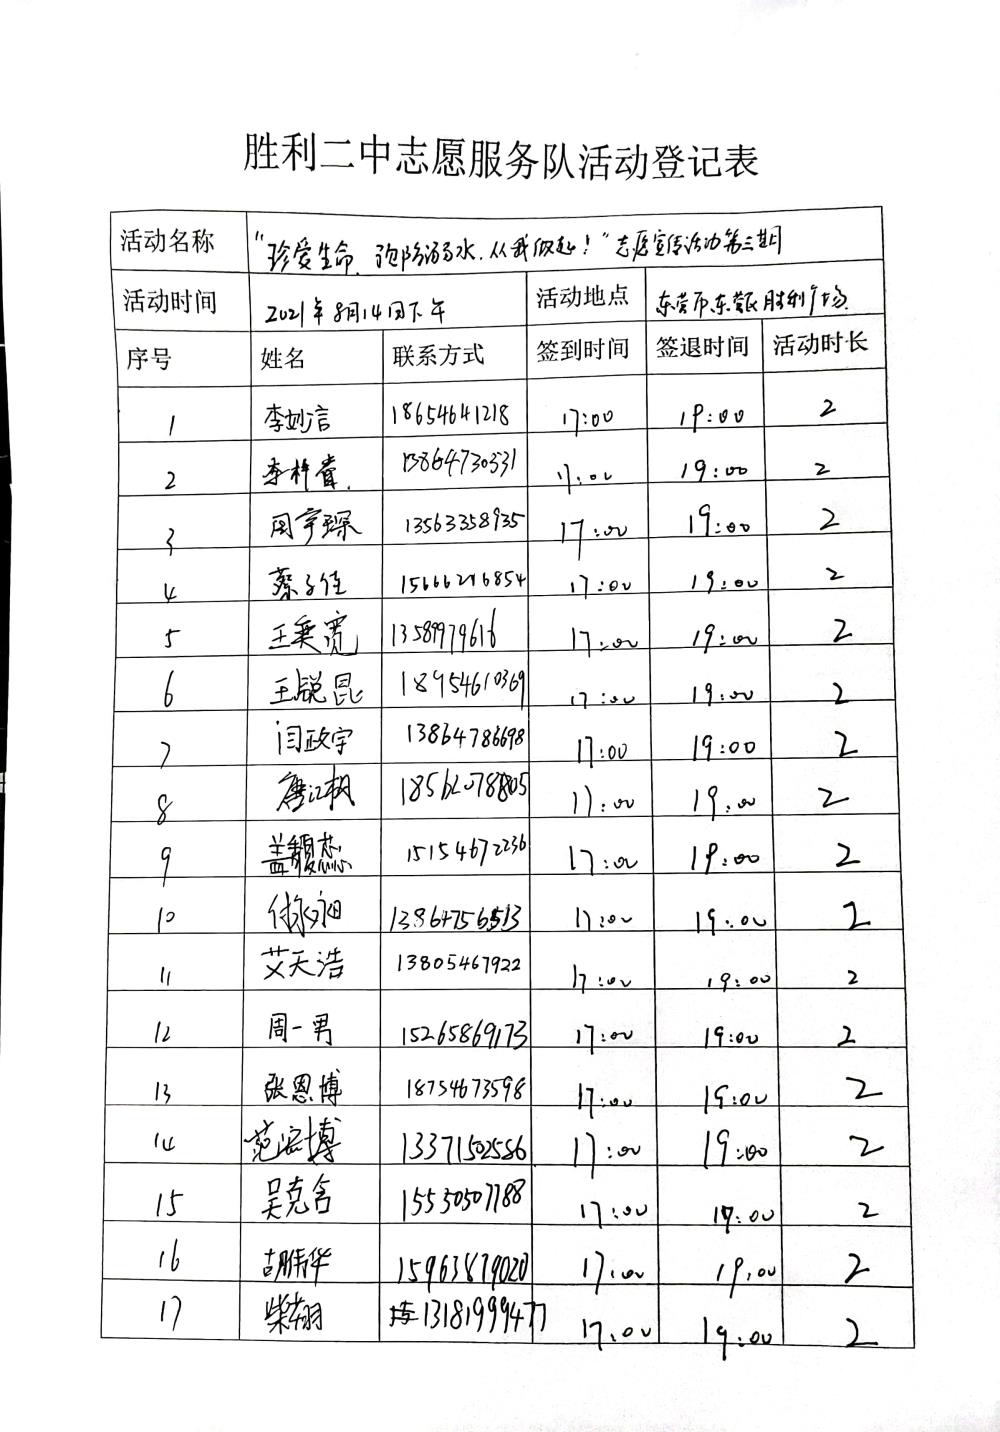 胜利二中志愿服务队活动登记表
活动名称 "珍爱生命 预防溺水.从我做起!"志愿宣传活动第三期
活动时间 2021年8月14日下午 活动地点 东营市东营区胜利广场
序号 姓名 联系方式 签到时间 签退时间 活动时长
1 李妙言 18654641218 17:00 19:00 2
2 李梓萱. 13864730331 17:00 19:00 2
3 周宇琛 13563358935 17:00 19:00 2
4 蔡子佳 15666216854 17:00 19:00 2
5 王秉宽 13589979616 17:00 19:00 2
6 王锐昆 18954610369 17:00 19:00 2
7 闫政宇 13864786698 17:00 19:00 2
8 唐江枫 18562078805 17:00 19:00 2
9 盖馥蕊 15154672236 17:00 19:00 2
10 13864756513 17:00 19:00 2
11 艾天浩 13805467922 17:00 19:00 2
12 周一男 15265869173 17:00 19:00 2
13 张恩博 18754673598 17:00 19:00 2
14 13371502556 17:00 19:00 2
15 吴克含 15530507788 17:00 19:00 2
16 胡倩华 15963879020 17:00 19:00 2
17 柴翔 13181999477 17:00 19:00 2